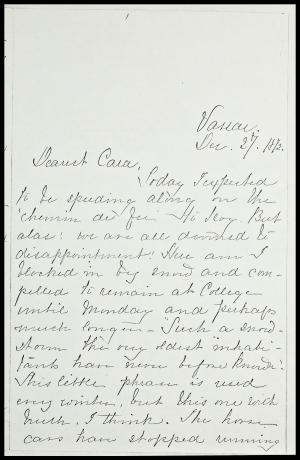 Vassar,
Dec. 27. 1872.
Dearest Cara,
Today I expected
to be speeding along on the
"chemin de fer" to Troy. But
alas! we are all doomed to
disappointment! Here am I
blocked in by snow and com-
pelled to remain at College
until Monday and perhaps
much longer. Such a snow-
storm the very oldest inhabi-
tants have never before known!
This little phrase is used
every winter, but this one with
truth, I think. The horse
cars have stopped running